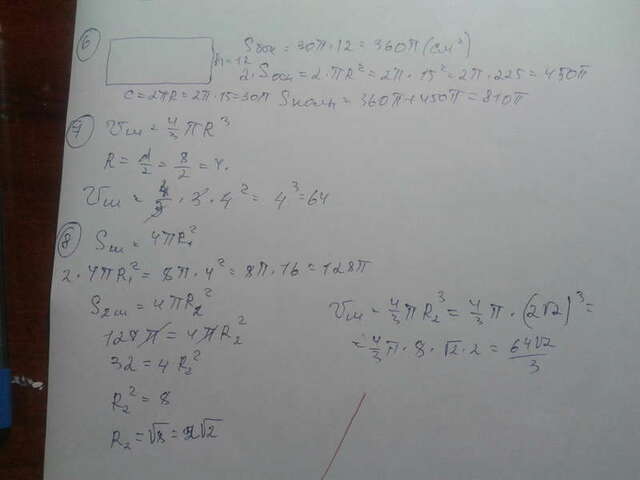 6 Sбок = 30π · 12 = 360π (см²)
h = 12
2 · Sосн = 2 · πR² = 2π · 15² = 2π · 225 = 450π
C = 2πR = 2π · 15 = 30π Sполн = 360π + 450π = 810π
7 Vш = 4/3 πR³
R = d/2 = 8/2 = 4.
Vш = 4/3 · 3 · 4² = 4³ = 64
8 Sш = 4πR₁²
2 · 4πR₁² = 8π · 4² = 8π · 16 = 128π
S₂ш = 4πR₂²
128π = 4πR₂²
32 = 4R₂²
R₂² = 8
R₂ = √8 = 2√2
Vш = 4/3 πR₂³ = 4/3 π · (2√2)³ =
= 4/3 π · 8 · √2 · 2 = 64√2/3